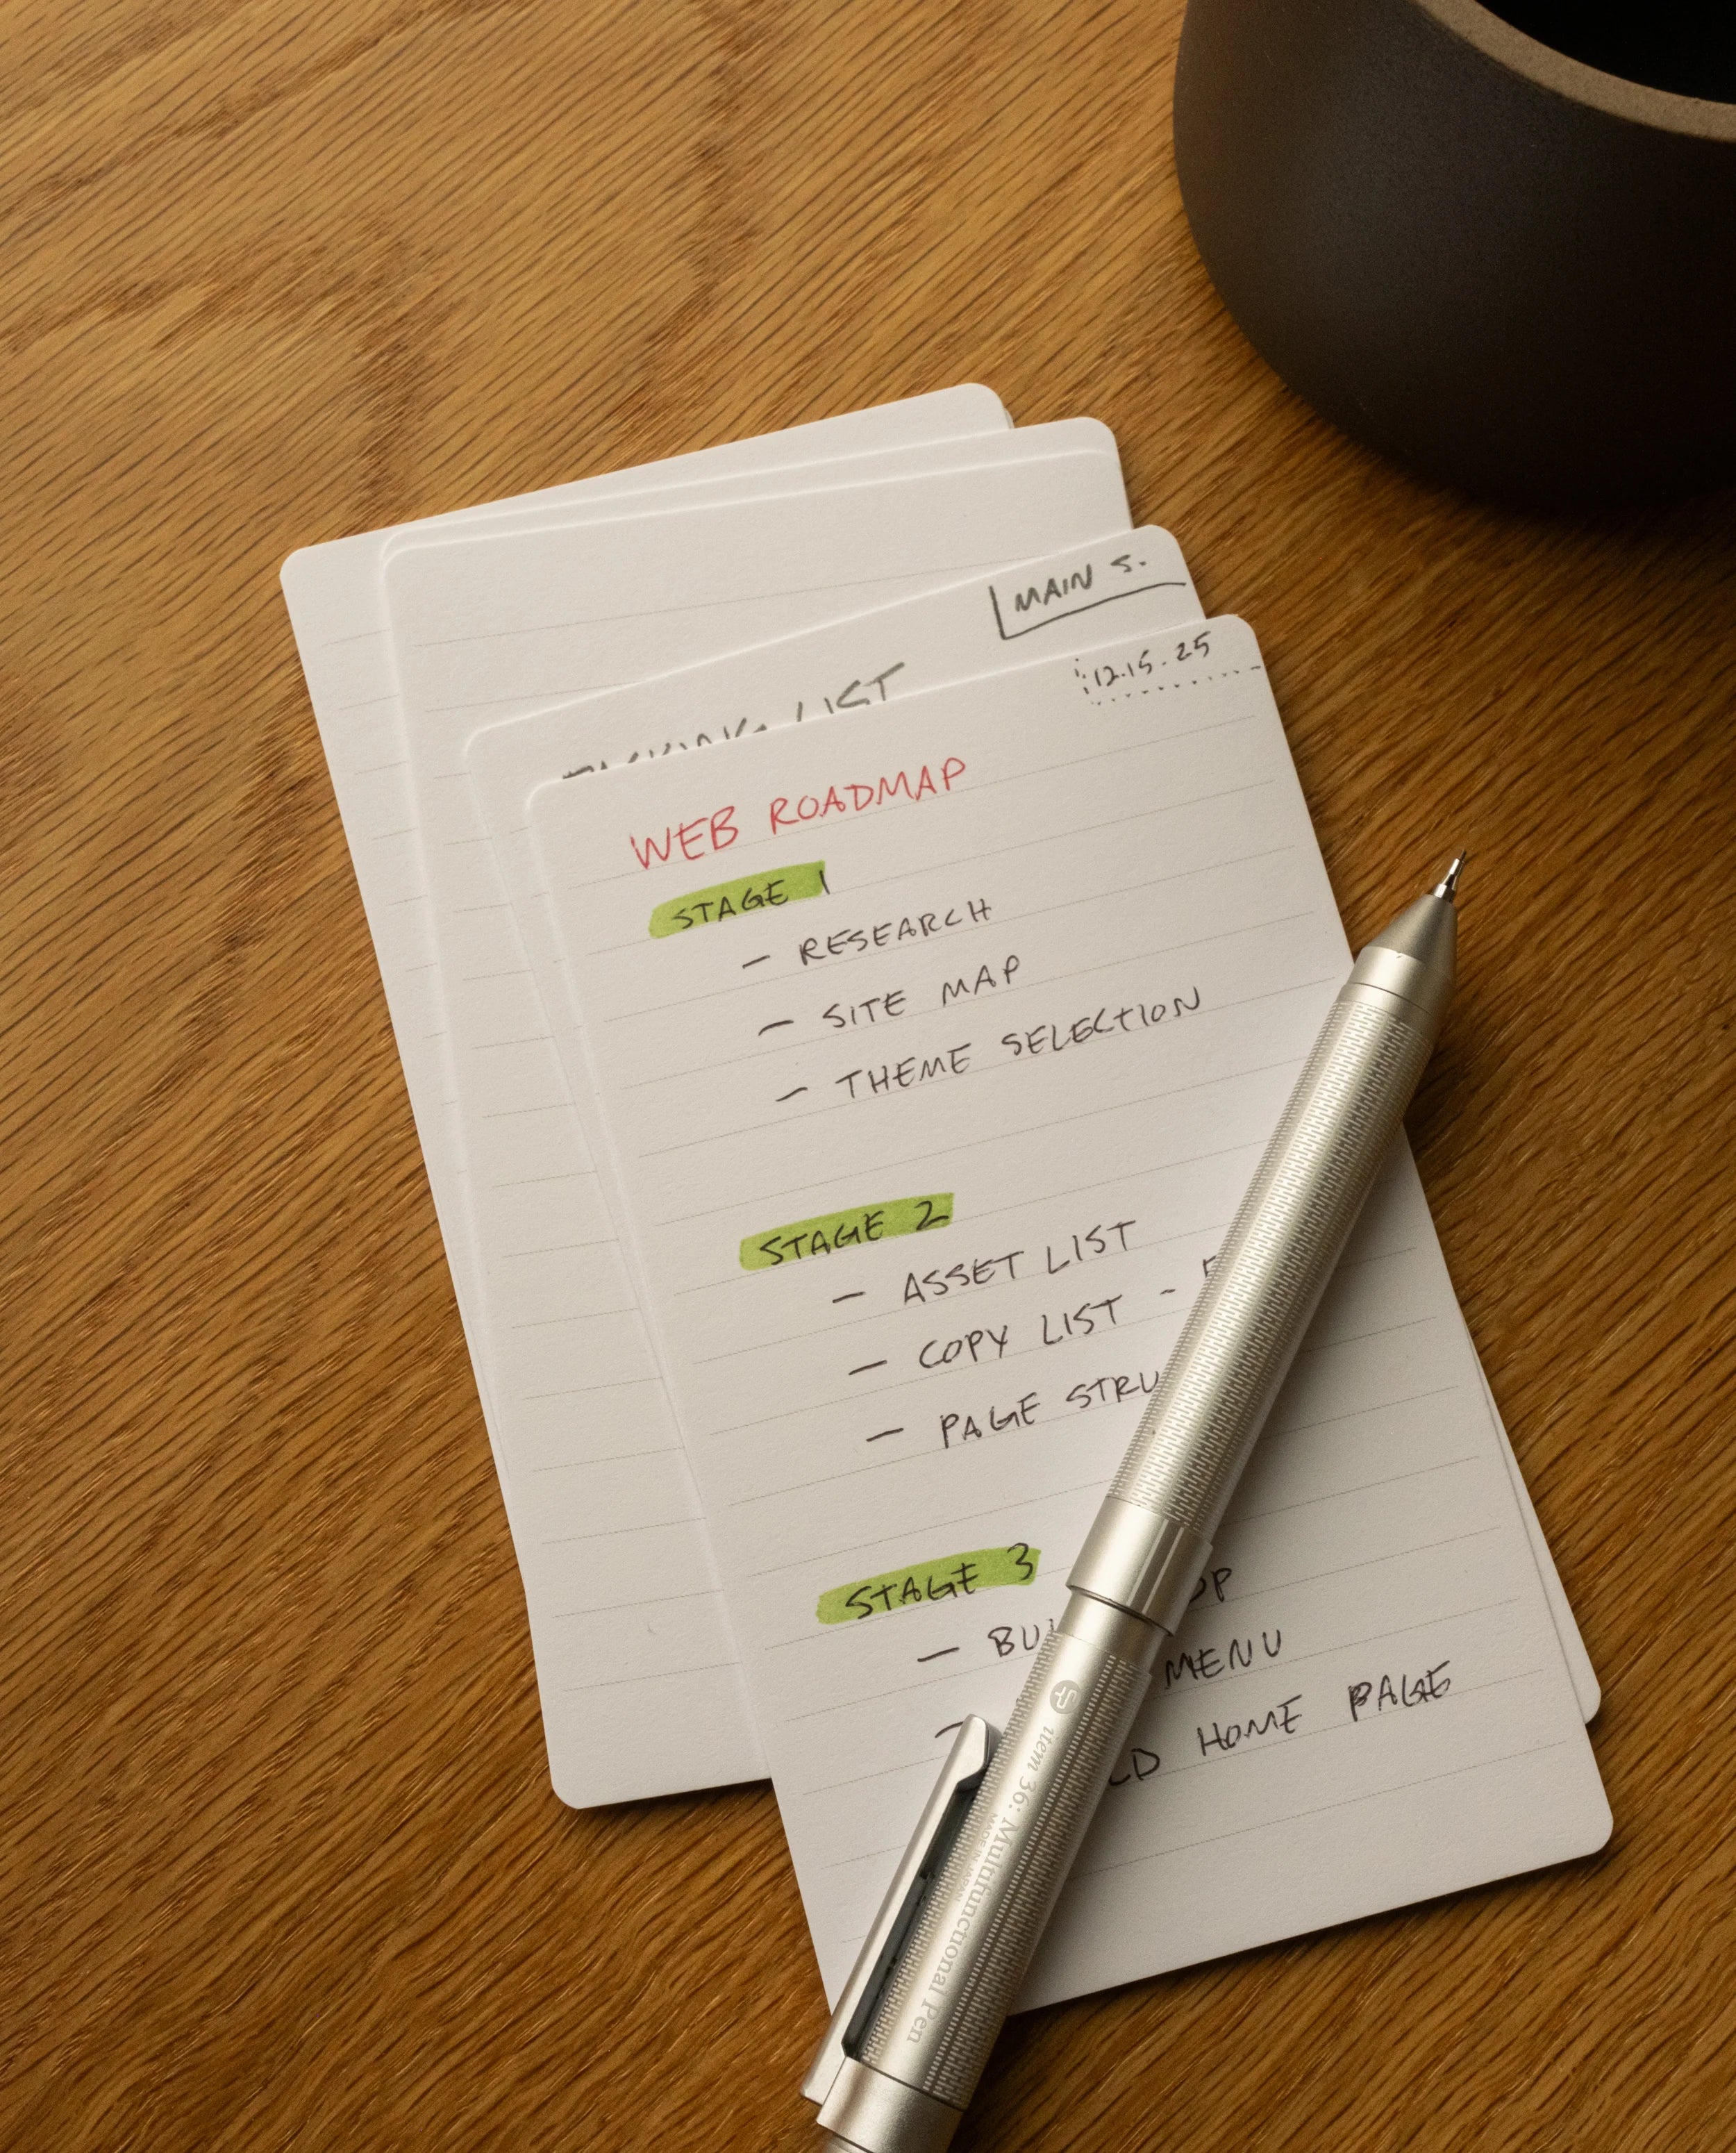 MAIN S.
LIST
12.15.25
WEB ROADMAP
STAGE 1
- RESEARCH
- SITE MAP
- THEME SELECTION
STAGE 2
- ASSET LIST
- COPY LIST -
- PAGE
STAGE 3
-
MENU
- HOME PAGE
Item 36: Multifunctional Pen
MADE IN JAPAN